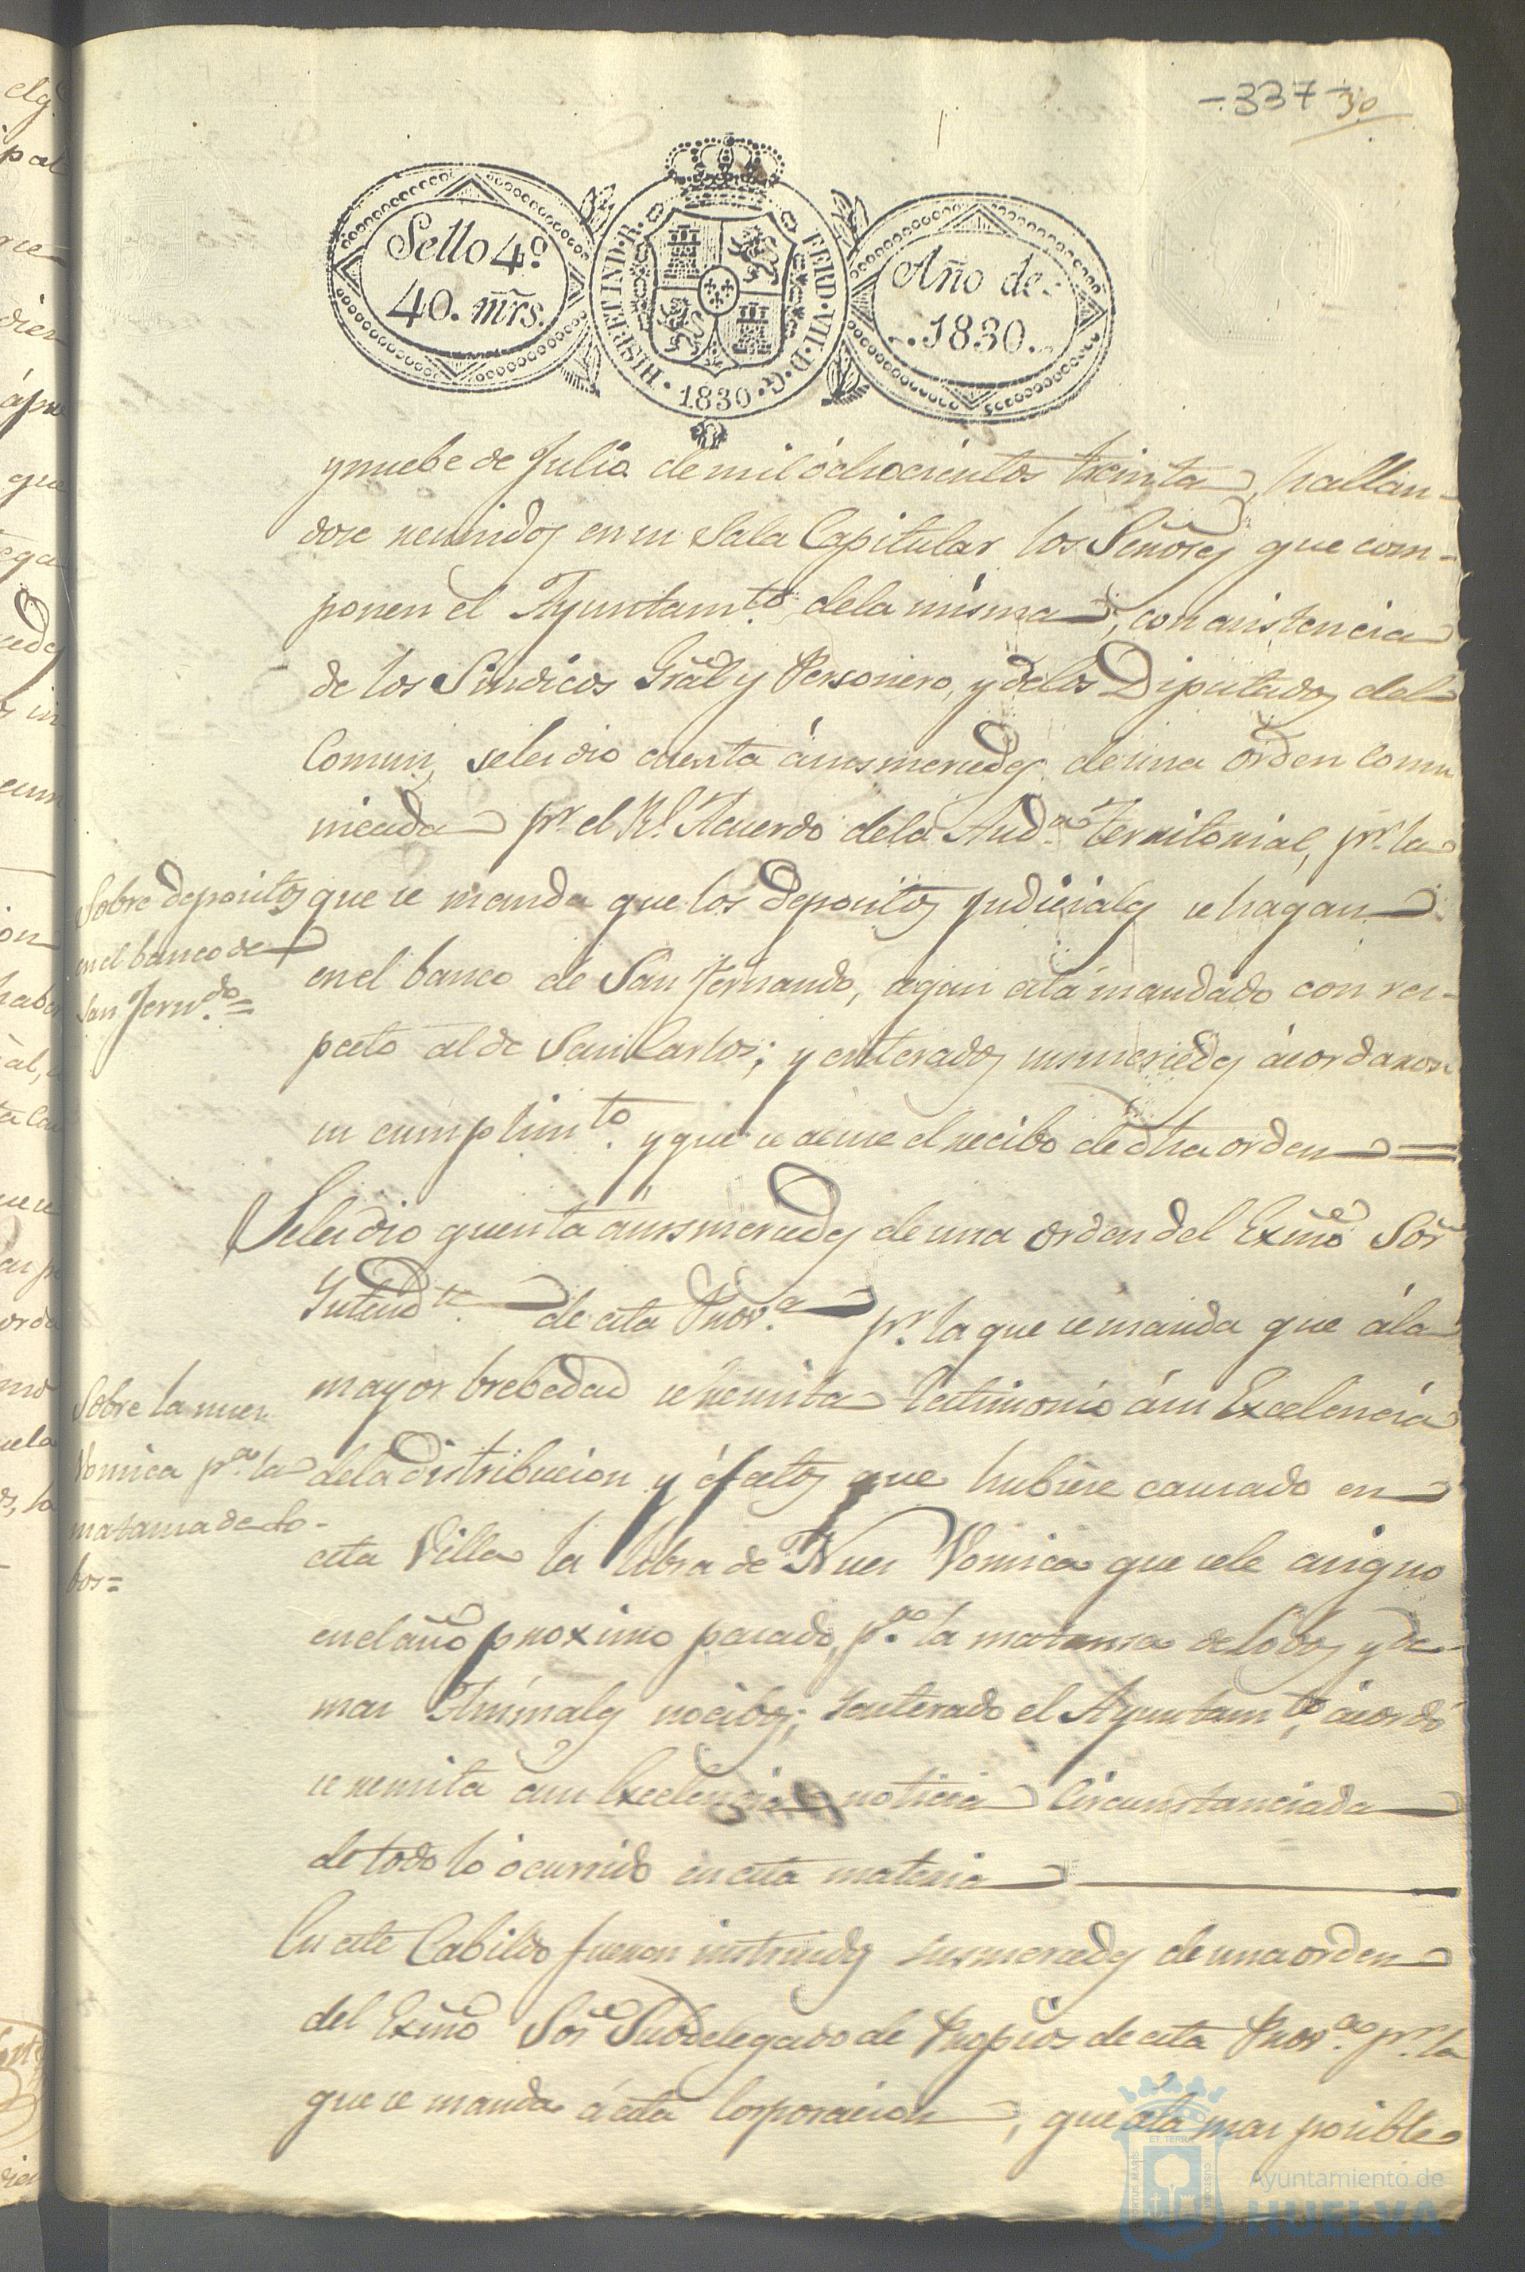 -337- 30
Sello 4º
40. mrs.
HISP.ET IND.R. FERD.VII.D.G. 1830
Año de
1830.
y nuebe de Julio de mil óchocientos treinta, hallan-
dose reunidos en su Sala Capitular los Señores que com-
ponen el Ayuntamto. dela misma, con asistencia
de los Sindicos Gral y Personero, y delos Diputados del
Comun, seles dio cuenta ásus mercedes de una órden comu
nicada pr. el Rl. Acuerdo dela Auda. territorial, pr. la
Sobre depositos
en el banco de
San Ferndo. =
que se manda que los depositos judiciales se hagan
en el banco de San Fernando, segun está mandado con res-
pecto al de San Carlos; y enterados sus mercedes ácordaron
su cumplimto. y que se acuse el recibo de dha orden =
Seles dio quenta ásus mercedes de una orden del Exmo Sor
Intendte. de esta Prova. pr. la que se manda que á la
mayor brebedad se remita testimonio á su Excelencia
Sobre la nuez
Vomica pa. la
matansa de Lo-
bos =
dela distribucion y éfectos que hubiese causado en
esta Villa la libra de Nues Vomica que sele asigno
en el año proximo pasado, pa. la matansa de Lobos y de-
mas Animales nocibos; y enterado el Ayuntamto. ácordó
se remita á su Excelencia noticia Circunstanciada
de todo lo ócurrido en esta materia
En este Cabildo fueron instruidos sus mercedes de una orden
del Exmo Sor Subdelegado de Propios de esta Prova. pr. la
que se manda á esta Corporacion, que á la mas posible
PORTUS MARIS ET TERRAE CUSTODIA
Ayuntamiento de
HUELVA